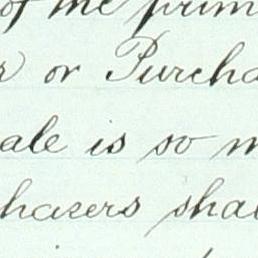 of the prim
or Purcha
ale is so m
hasers shal